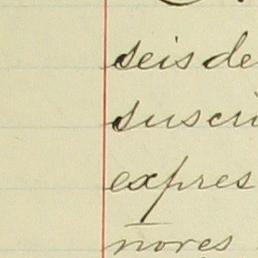 seis de
suscri
expres
ñores